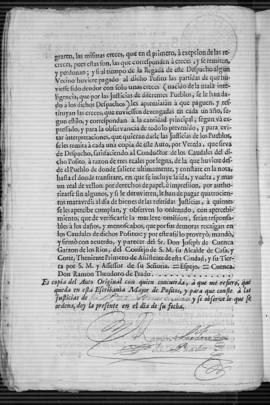 graren, las mismas creces, que en el primero, à exepcion de las re-
creces, pues estas son, las que corresponden à creces, y se remiten,
y perdonan; y si al tiempo de la llegada de este Despacho algun
Vecino huviere pagado al dicho Posito las partidas de que tu-
viesse sido deudor con solo unas creces (nacido de la mala inte-
ligencia, que por las Justicias de diferentes Pueblos, se le han da-
do à los dichos Despachos) les apremiaràn à que paguen, y rein-
tegren las recreces, que tuviessen devengadas en cada un año, se-
gun estàn, y correspondan à la cantidad principal, segun và ex-
pressado, y para la observancia de todo lo prevenido, y para evi-
tar interpretaciones, que quieran darle las Justicias de los Pueblos,
se les remita à cada una copia de este Auto, por Vereda, que sirva
de Despacho, satisfaciendo al Conductor de los Caudales del di-
cho Posito, à razon de tres reales por legua, de la que huviere des-
de el Pueblo de donde saliere ultimamente, y constare en la nota,
hasta el donde transitare, en que se incluye la ida, y vuelta, y mas
un real de vellon por derechos de papel, è impression, por autho-
rizarle sin algunos, y si le detuvieren, le han de pagar quatrocientos
maravedis al dia de bienes de las referidas Justicias, à quienes
se les apercibe cumplan, y observen lo ordenado, con apercibi-
miento, que de verificarse la mas leve omission, seràn responsa-
bles à los daños, y menoscabos, que por sus demoras recaigan en
los Caudales de dichos Positos; y por este assi lo proveyò, mandò,
y firmò con acuerdo, y parecer del Sr. Don Joseph de Cuenca
Garzon de los Rios, del Consejo de S. M. su Alcalde de Casa, y
Corte, Theniente Primero de Assistente de esta Ciudad, y su Tier-
ra por S. M. y Assessor de su Señoria. = Espejo. = Cuenca.
Don Ramon Theodoro de Prado.
Es copia del Auto Original con quien concuerda, à que me refiero, que
queda en esta Escribania Mayor de Positos, y para que conste à las
Justicias de
y se observe lo que se
ordena, doy la presente en el dia de su fecha.